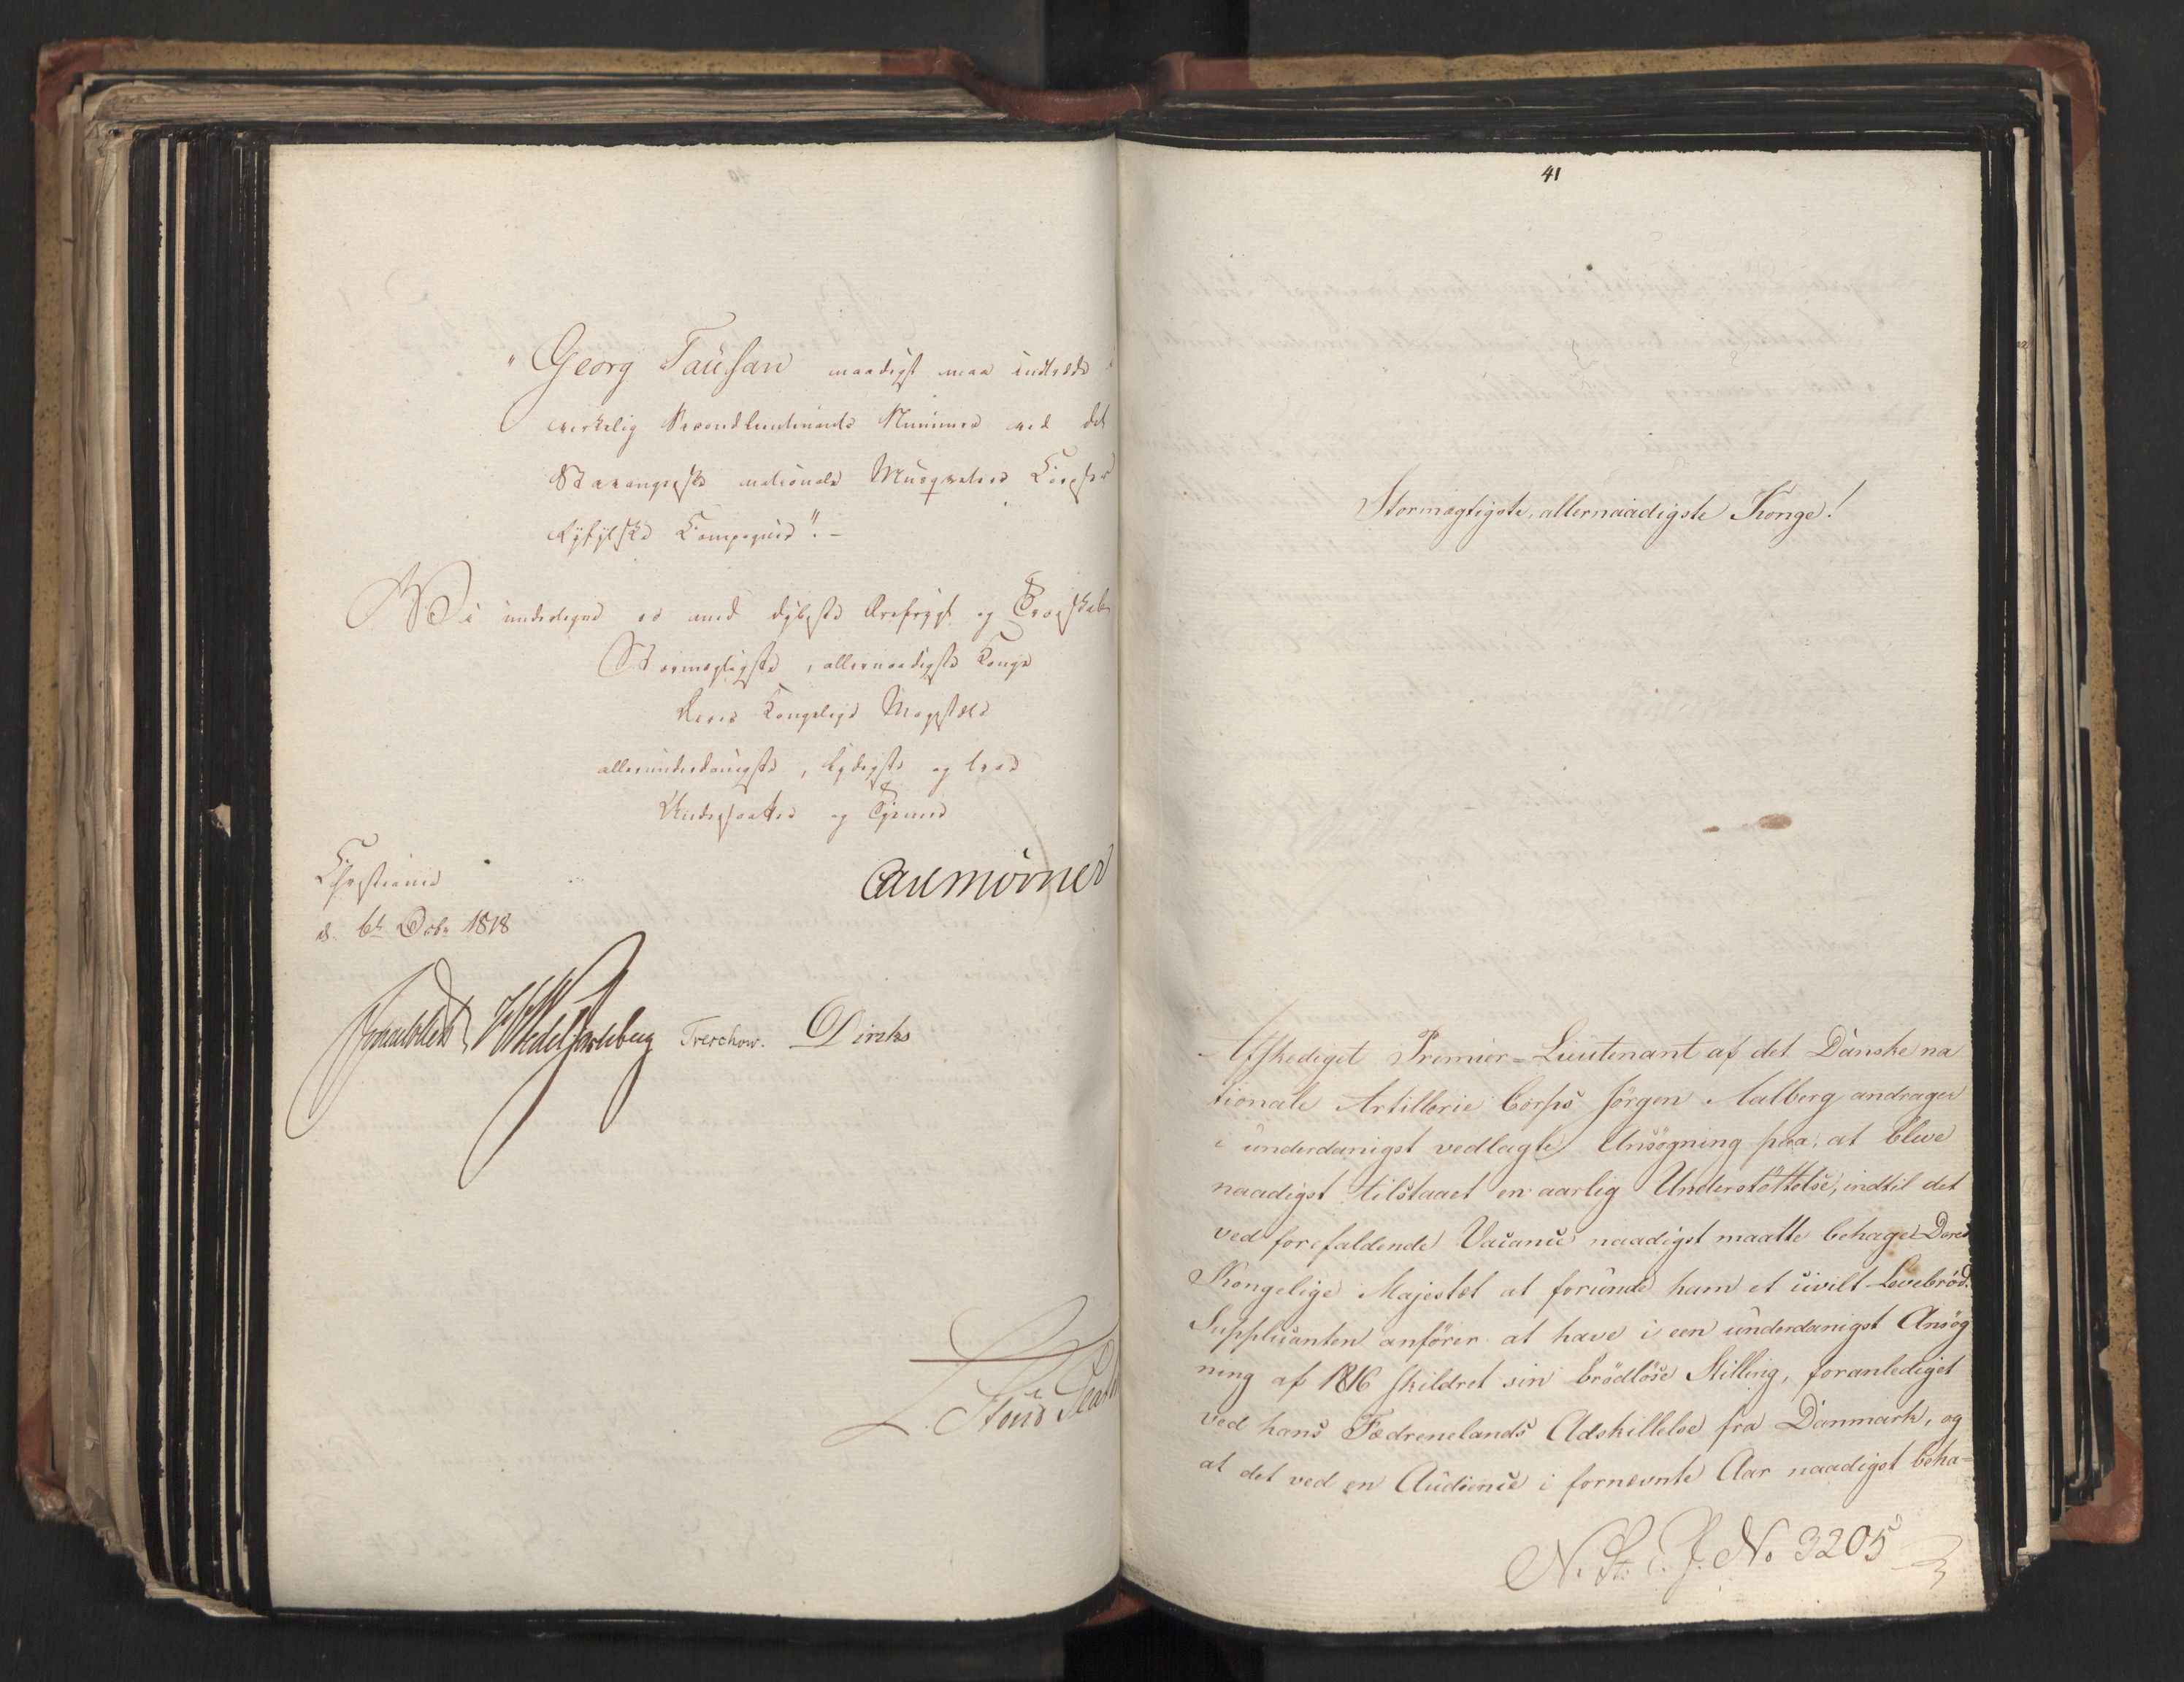 "Georg Taüsan naadigst maa indtræde i
virkelig Secondlieutenants Nummer ved det
Stavangerske nationale Musqueteer Corpses
Ryfylkske Compagnie". -
Vi undertegne os med dybeste Ærefrygt og Troeskab
Stormægtigste, allernaadigste Konge
Deres Kongelige Majestæts
allerunderdanigste, lydigste og troe
Undersaatter og Tjenere
Carl Mörner
Christiania
d. 6te Octbr 1818
Sommerhielm WedelJarlsberg Treschow. Diriks
L. Stoud Platou
41
Stormægtigste, allernaadigste Konge!
Afskediget Premier=Lieutenant af det Danske na
tionale Artillerie Corps Jörgen Aalberg andrager
i ünderdanigst vedlagte Ansögning paa, at blive
naadigst tilstaaet en aarlig Understöttelse, indtil det
ved forefaldende Vacance naadigst maatte behage Deres
Kongelige Majestet at foründe ham et civilt Levebröd.
Supplicanten anförer at have i een ünderdanigst Ansög
ning af 1816 skildret sin brödlöse Stilling, foranlediget
ved hans Fædrenelands Adskillelse fra Danmark, og
at det ved en Audience i fornævnte Aar naadigst beha=
N. St. C. J. No 3205